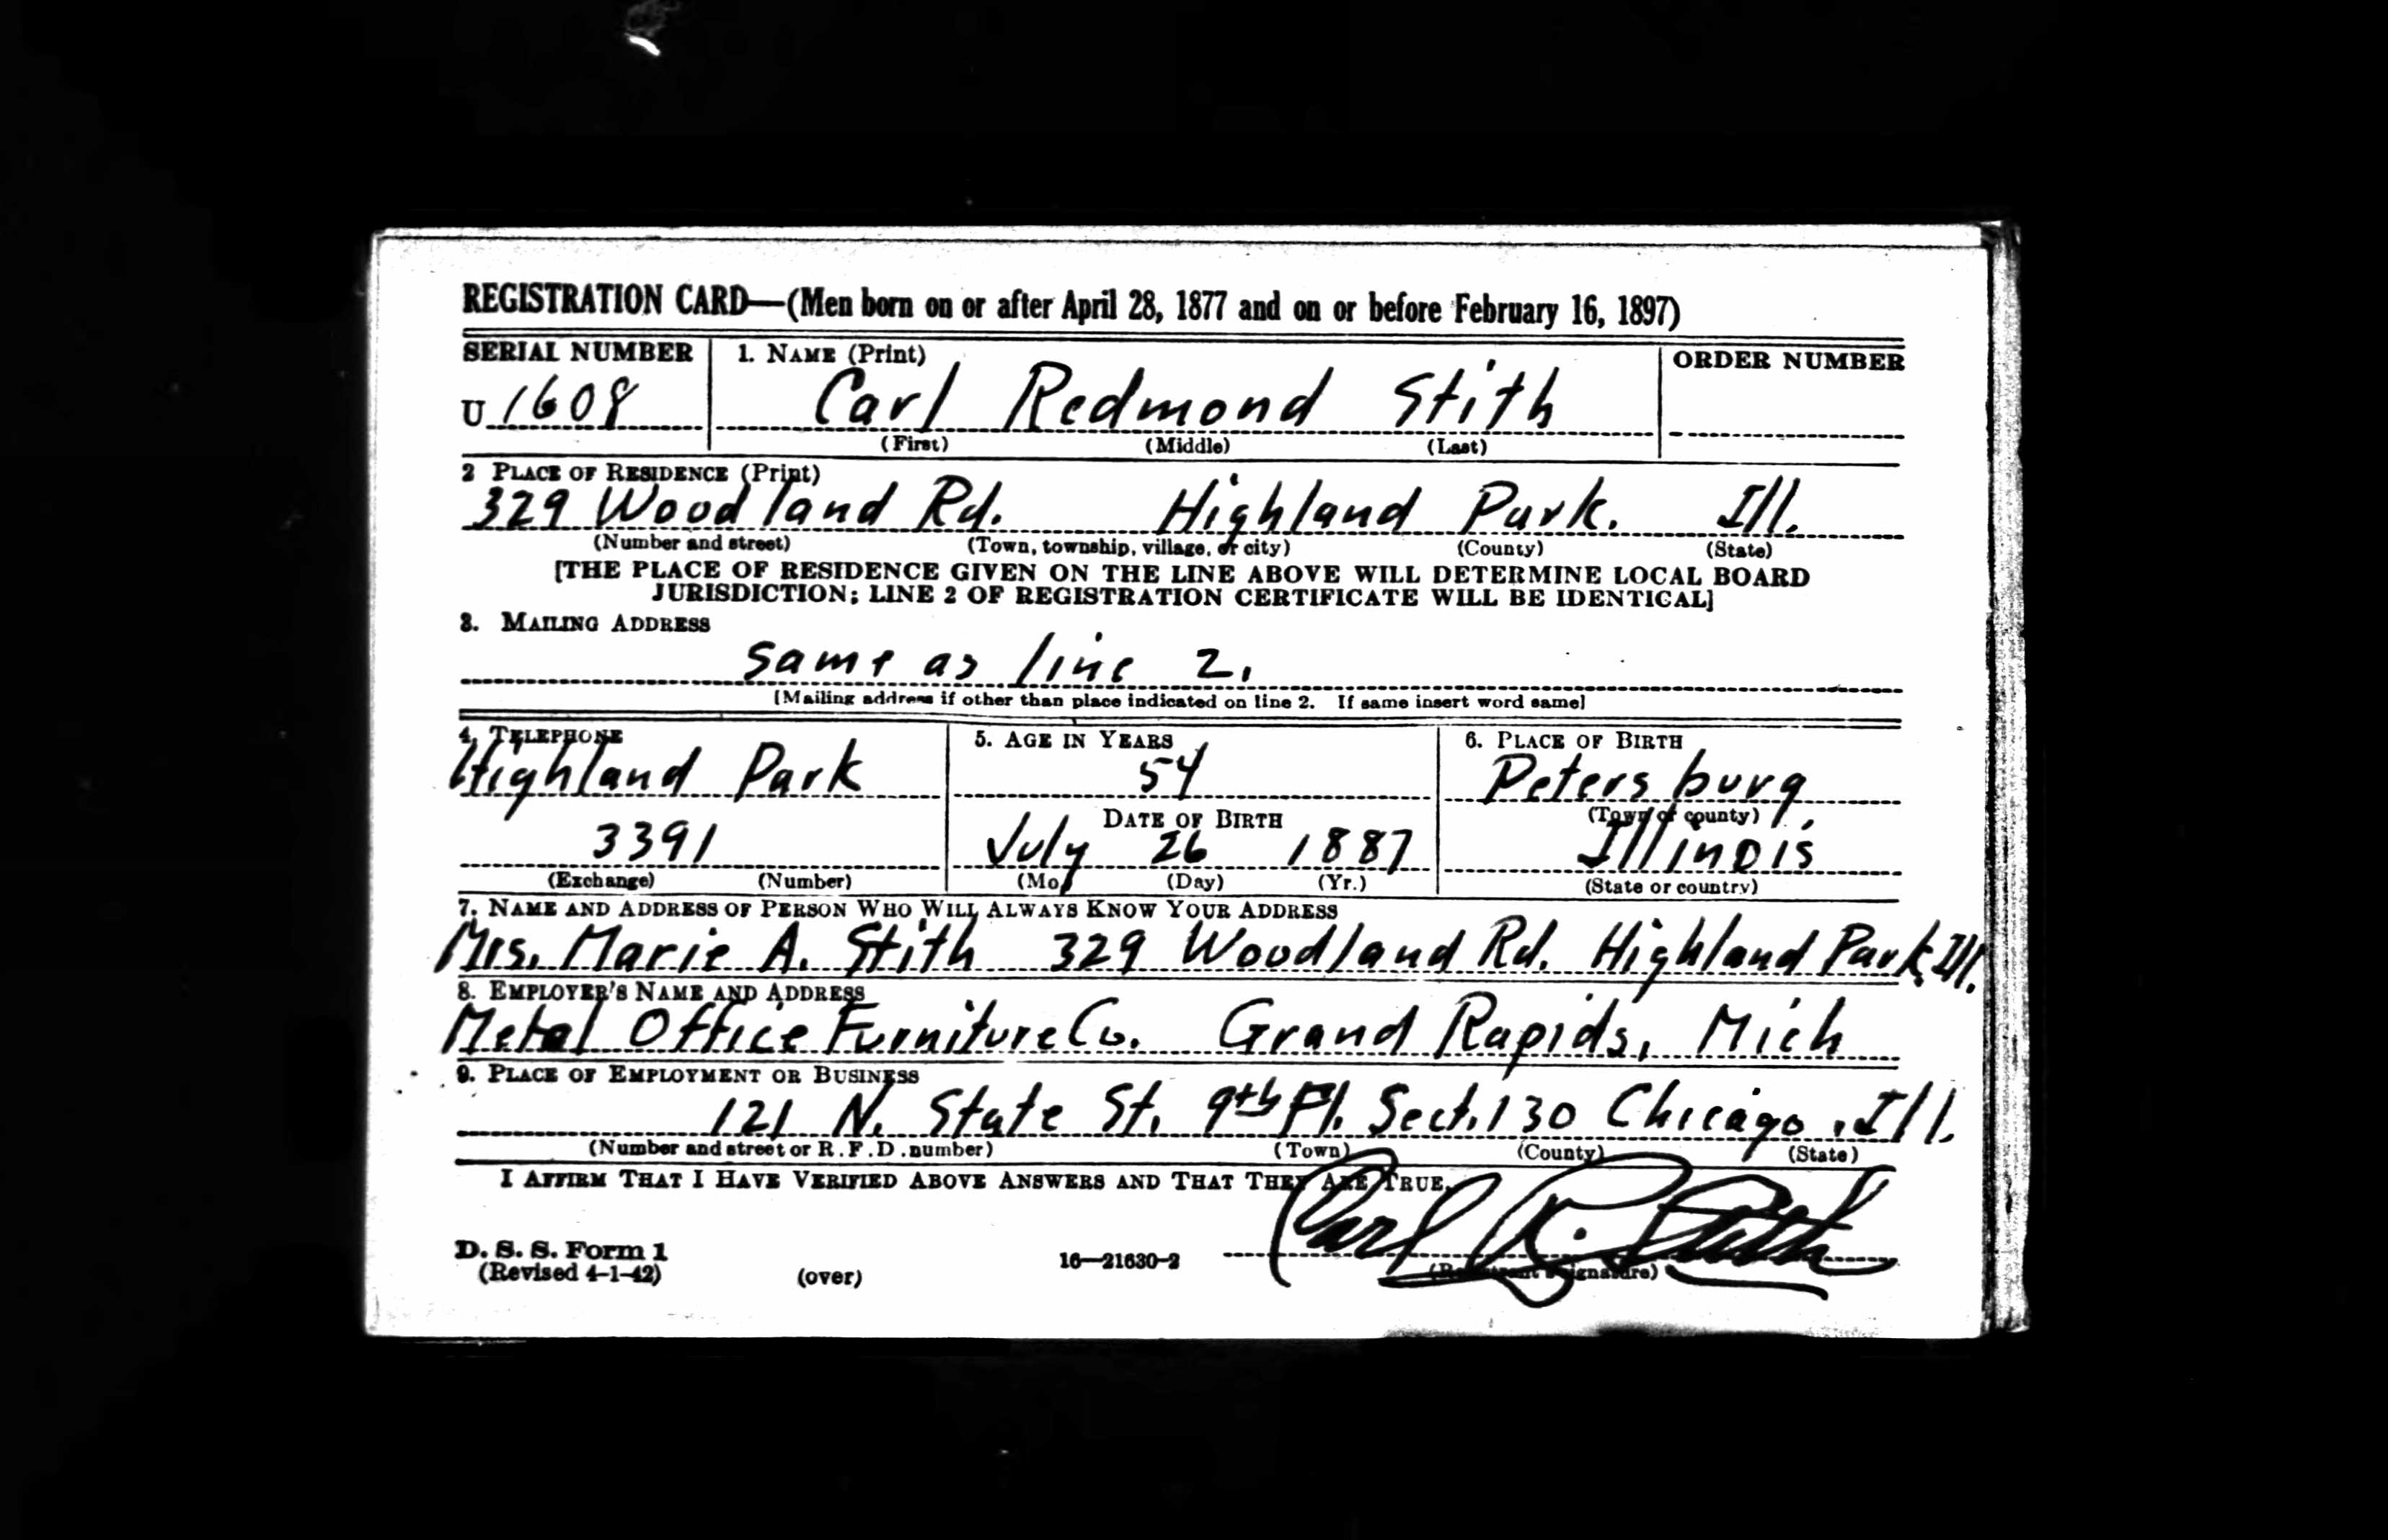 REGISTRATION CARD—(Men born on or after April 28, 1877 and on or before February 16, 1897)
SERIAL NUMBER 1. NAME (Print) ORDER NUMBER
U 1608 Carl Redmond Stith
(First) (Middle) (Last)
2 PLACE OF RESIDENCE (Print)
329 Woodland Rd. Highland Park. Ill.
(Number and street) (Town, township, village, or city) (County) (State)
[THE PLACE OF RESIDENCE GIVEN ON THE LINE ABOVE WILL DETERMINE LOCAL BOARD
JURISDICTION; LINE 2 OF REGISTRATION CERTIFICATE WILL BE IDENTICAL]
3. MAILING ADDRESS
same as line 2.
[Mailing address if other than place indicated on line 2. If same insert word same]
4. TELEPHONE 5. AGE IN YEARS 6. PLACE OF BIRTH
Highland Park 54 Petersburg,
DATE OF BIRTH (Town or county)
3391 July 26 1887 Illinois
(Exchange) (Number) (Mo.) (Day) (Yr.) (State or country)
7. NAME AND ADDRESS OF PERSON WHO WILL ALWAYS KNOW YOUR ADDRESS
Mrs. Marie A. Stith 329 Woodland Rd. Highland Park, Ill.
8. EMPLOYER'S NAME AND ADDRESS
Metal Office Furniture Co. Grand Rapids, Mich
9. PLACE OF EMPLOYMENT OR BUSINESS
121 N. State St. 9th Fl. Sect. 130 Chicago, Ill.
(Number and street or R. F. D. number) (Town) (County) (State)
I AFFIRM THAT I HAVE VERIFIED ABOVE ANSWERS AND THAT THEY ARE TRUE.
Carl R. Stith
D. S. S. Form 1
(Revised 4-1-42) (over) 16—21630-2 (Registrant's signature)